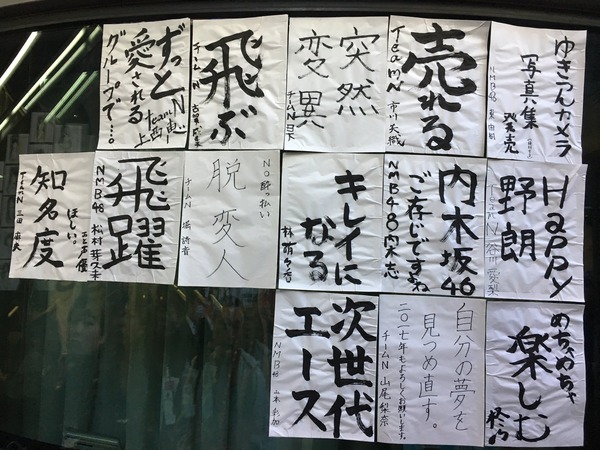 ずっと
愛される
グループで…。
TeamN
上西恵
飛ぶ
チームN
突然
変異
チームN
売れる
TeamN 市川美織
ゆきつんカメラ
写真集
発売
NMB48 東由樹
知名度
ほしい。
TeamN 三田麻央
飛躍
NMB48
NO酔っ払い
脱変人
チームN
堀詩音
キレイに
なる
林萌々香
内木坂46
ご存じですね
NMB48 内木志
Happy
野朗
TeamN 谷川愛梨
次世代
エース
NMB48 山本彩加
自分の夢を
見つめ直す。
2017年もよろしくお願いします。
チームN 山尾梨奈
めちゃめちゃ
楽しむ